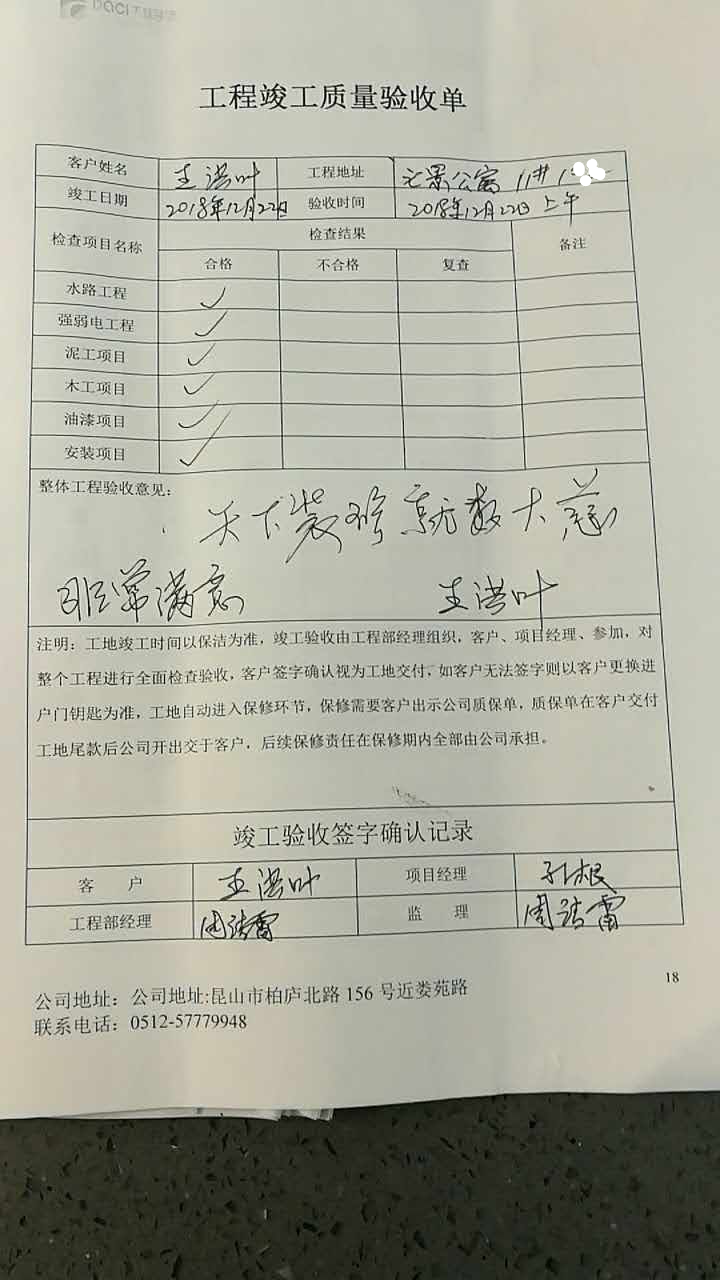 工程竣工质量验收单
客户姓名 王洪叶 工程地址 公寓 11#
竣工日期 2018年12月22日 验收时间 2018年12月22日上午
检查项目名称 检查结果 备注
合格 不合格 复查
水路工程 ✓
强弱电工程 ✓
泥工项目 ✓
木工项目 ✓
油漆项目 ✓
安装项目 ✓
整体工程验收意见:
天下装修就数大慈
非常满意 王洪叶
注明：工地竣工时间以保洁为准，竣工验收由工程部经理组织，客户、项目经理、参加，对
整个工程进行全面检查验收，客户签字确认视为工地交付，如客户无法签字则以客户更换进
户门钥匙为准，工地自动进入保修环节，保修需要客户出示公司质保单，质保单在客户交付
工地尾款后公司开出交于客户，后续保修责任在保修期内全部由公司承担。
竣工验收签字确认记录
客 户 王洪叶 项目经理 孙根
工程部经理 周靖雷 监 理 周靖雷
18
公司地址：公司地址:昆山市柏庐北路 156 号近娄苑路
联系电话：0512-57779948